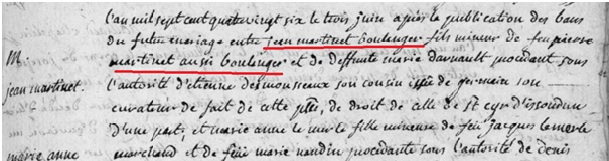 L'an mil sept cent quatre vingt six le trois juin après la publication des bans
du futur mariage entre jean martinet boulanger fils mineur de feu pierre
M.
martinet aussi boulanger et de deffunte marie darnault procedant sous
jean martinet.
l'autorité d'etienne desmousseaux son cousin de germain
curateur de fait de cette psse, de droit de celle de st cyr d'issoudun
d'une part, et marie anne fille mineure de feu jacques
marie anne
marchand et de feüe marie naudin procedante sous l'autorité de denis